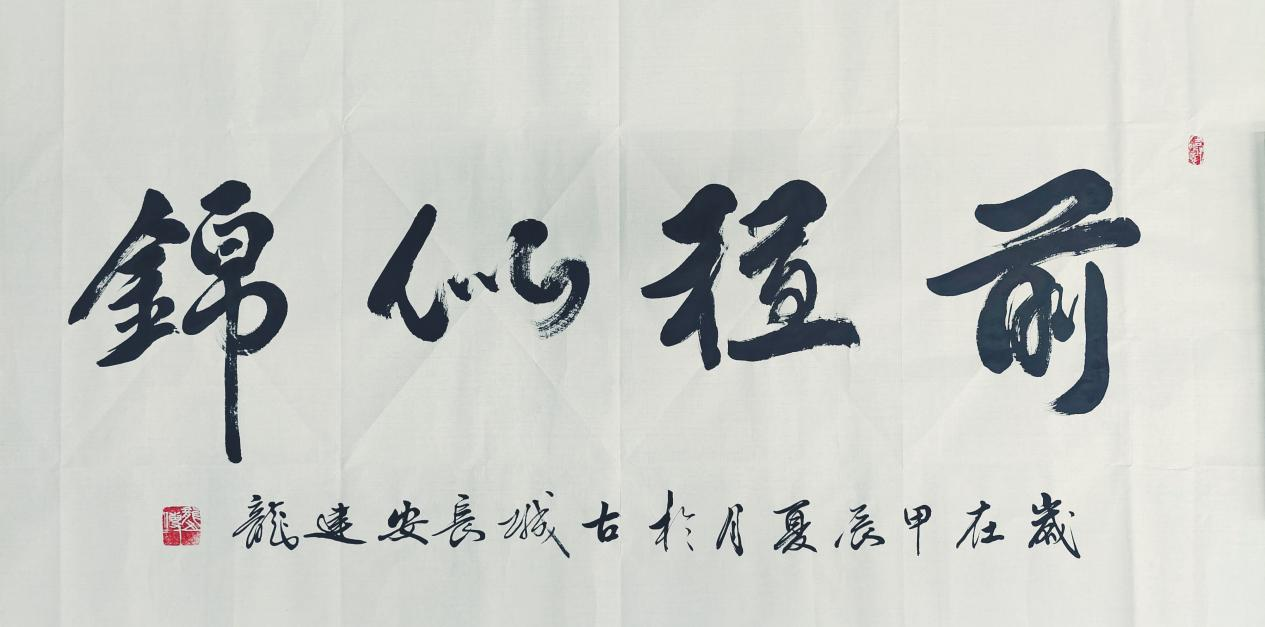 前程似錦
歲在甲辰夏月於古城長安建龍